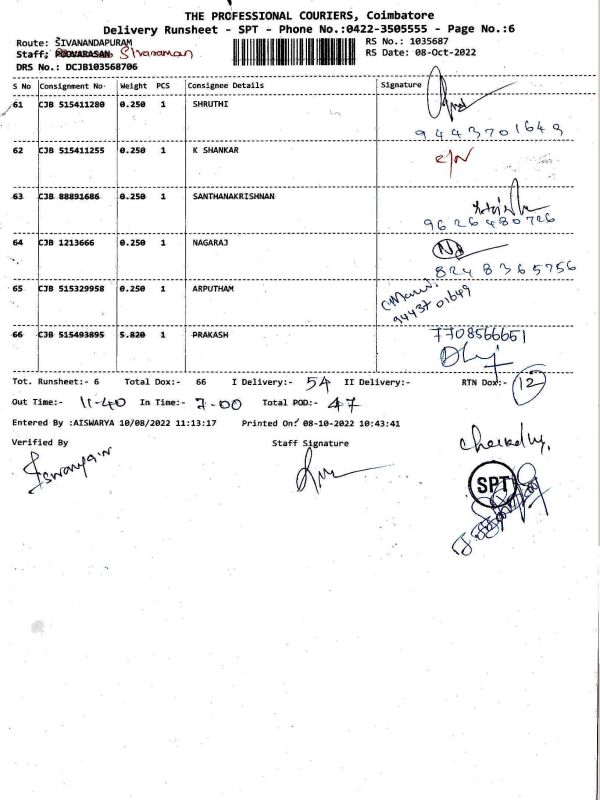 THE PROFESSIONAL COURIERS, Coimbatore
Delivery Runsheet - SPT - Phone No.:0422-3505555 - Page No.:6
Route: SIVANANDAPURAM
RS No.: 1035687
Staff; POOVARASAN Sivaraman
RS Date: 08-Oct-2022
DRS No.: DCJB103568706
S No Consignment No Weight PCS Consignee Details Signature
61 CJB 515411280 0.250 1 SHRUTHI
9443701649
62 CJB 515411255 0.250 1 K SHANKAR
63 CJB 88891686 0.250 1 SANTHANAKRISHNAN
9626480726
64 CJB 1213666 0.250 1 NAGARAJ
8248365756
65 CJB 515329958 0.250 1 ARPUTHAM
9443701649
66 CJB 515493895 5.820 1 PRAKASH 7708566651
Tot. Runsheet:- 6 Total Dox:- 66 I Delivery:- 54 II Delivery:- RTN Dox:- 12
Out Time:- 11-40 In Time:- 7-00 Total POD:- 47
Entered By :AISWARYA 10/08/2022 11:13:17 Printed On: 08-10-2022 10:43:41
Verified By Staff Signature
SPT